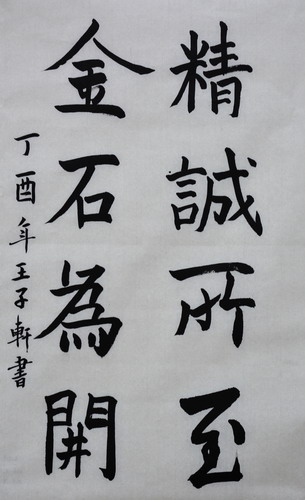 精誠所至
金石為開
丁酉年王子軒書